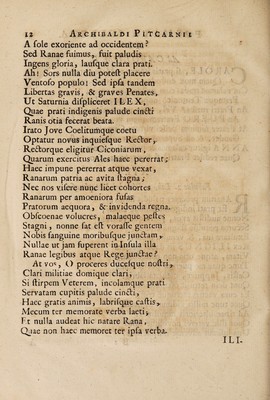 12 ARCHIBALDI PITCARNII
A sole exoriente ad occidentem?
Sed Ranae fuimus, fuit paludis
Ingens gloria, lausque clara prati.
Ah! Sors nulla diu potest placere
Ventoso populo! Sed ipsa tandem
Libertas gravis, & graves Penates,
Ut Saturnia displiceret ILEX,
Quae prati indigenis palude cincti
Ranis otia fecerat beata.
Irato Jove Coelitumque coetu
Optatur novus inquiesque Rector,
Rectorque eligitur Ciconiarum,
Quarum exercitus Ales haec pererrat;
Haec impune pererrat atque vexat,
Ranarum patria ac avita stagna;
Nec nos visere nunc licet cohortes
Ranarum per amoeniora fusas
Pratorum aequora, & invidenda regna.
Obscoenae volucres, malaeque pestes
Stagni, nonne sat est vorasse gentem
Nobis sanguine moribusque junctam,
Nullae ut jam superent in Insula illa
Ranae legibus atque Rege junctae?
At vos, O proceres ducesque nostri,
Clari militiae domique clari,
Si stirpem Veterem, incolamque prati
Servatam cupitis palude cincti,
Haec gratis animis, labrisque castis,
Mecum ter memorate verba laeti,
Et nulla audeat hic natare Rana,
Quae non haec memoret ter ipsa verba.
ILI.